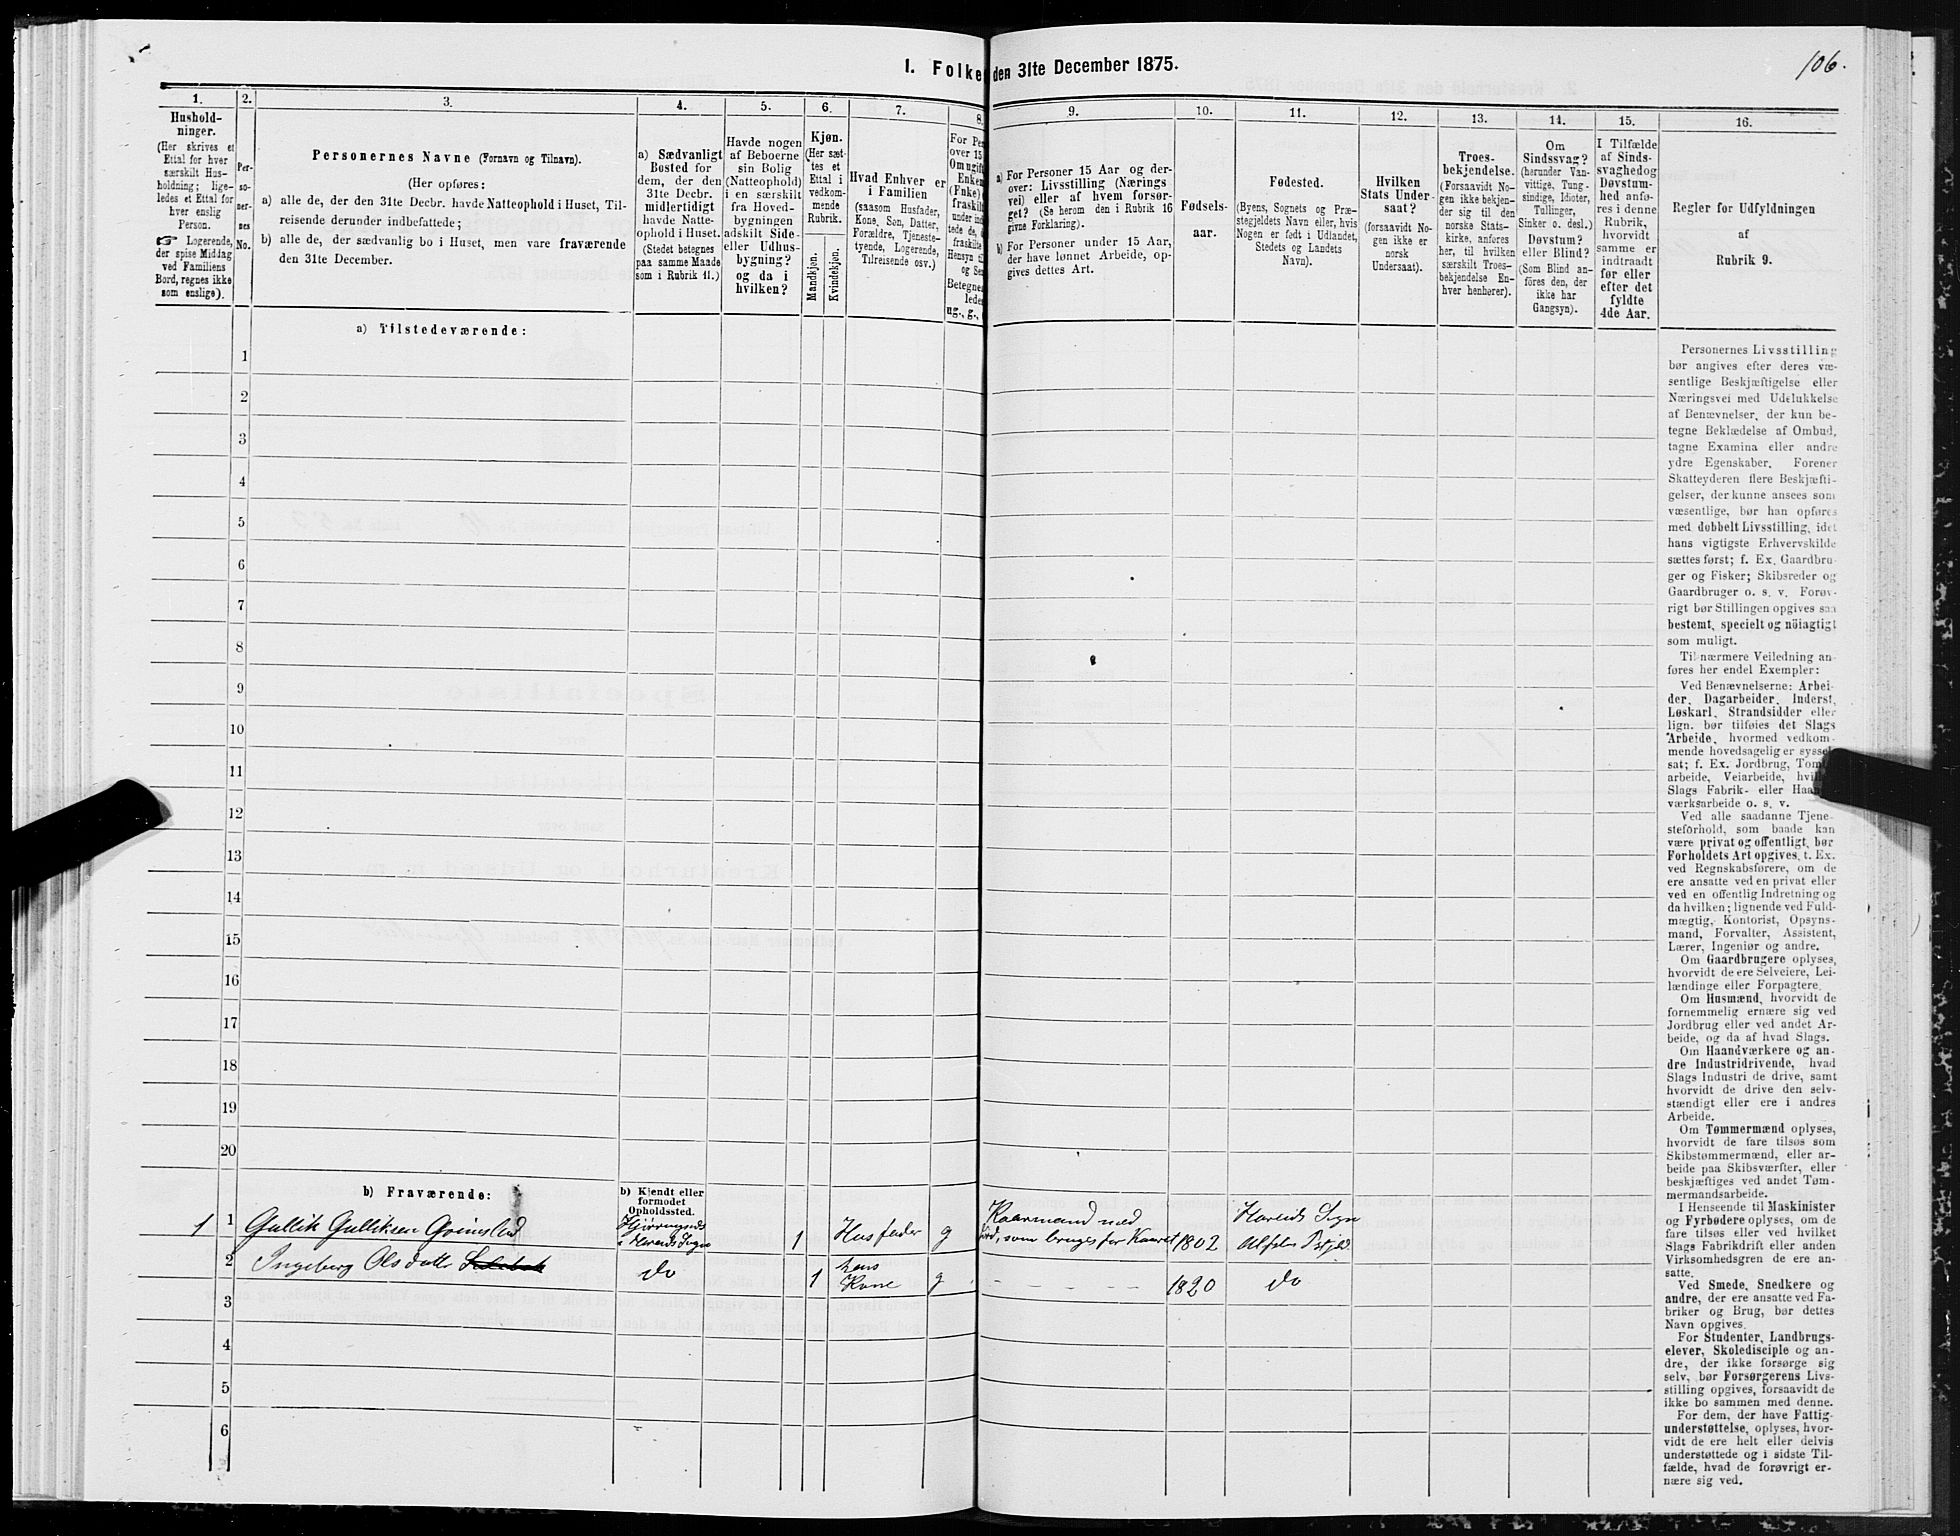 106.
I. Folke
den 31te December 1875.
1.
2.
3.
4.
5.
6.
7.
8.
9.
10.
11.
12.
13.
14.
15.
16.
Hushold-
ninger.
(Her skrives et
Ettal for hver
særskilt Hus-
holdning; lige-
ledes et Ettal for
hver enslig
Person.
☞ Logerende,
der spise Middag
ved Familiens
Bord, regnes ikke
som enslige).
Per-
so-
ner-
nes
No.
Personernes Navne (Fornavn og Tilnavn).
(Her opføres:
a) alle de, der den 31te Decbr. havde Natteophold i Huset, Til-
reisende derunder indbefattede;
b) alle de, der sædvanlig bo i Huset, men vare fraværende
den 31te December.
a) Sædvanligt
Bosted for
dem, der den
31te Decbr.
midlertidigt
havde Natte-
ophold i Huset.
(Stedet betegnes
paa samme Maade
som i Rubrik 11.)
Havde nogen
af Beboerne
sin Bolig
(Natteophold)
i en særskilt
fra Hoved-
bygningen
adskilt Side-
eller Udhus-
bygning?
og da i
hvilken?
Kjøn.
(Her sæt-
tes et
Ettal i
vedkom-
mende
Rubrik.
Mandkjøn.
Kvindekjøn.
Hvad Enhver er
i Familien
(saasom Husfader,
Kone, Søn, Datter,
Forældre, Tjeneste-
tyende, Logerende,
Tilreisende osv.)
For Pe
over 15
Om ugift
Enken
(Fnke)
fraskilt
under in
tede de,
fraskilte
Hensyn ti
og Se
Betegnes
ledes
ug., g.,
a) For Personer 15 Aar og der-
over: Livsstilling (Nærings
vei) eller af hvem forsør-
get? (Se herom den i Rubrik 16
givne Forklaring).
b) For Personer under 15 Aar,
der have lønnet Arbeide, op-
gives dettes Art.
Fødsels-
aar.
Fødested.
(Byens, Sognets og Præ-
stegjeldets Navn eller, hvis
Nogen er født i Udlandet,
Stedets og Landets
Navn).
Hvilken
Stats Under
saat?
(forsaavidt No-
gen ikke er
norsk
Undersaat).
Troes-
bekjendelse.
(Forsaavidt No-
gen ikke bekjen-
der sig til den
norske Stats-
kirke, anføres
her, til hvilken
særskilt Troes-
bekjendelse En-
hver henhører).
Om
Sindssvag?
(herunder Van-
vittige, Tung-
sindige, Idioter,
Tullinger,
Sinker o. desl.)
Døvstum?
eller Blind?
(Som Blind an-
føres den, der
ikke har
Gangsyn).
I Tilfælde
af Sinds-
svaghedog
Døvstum-
hed anfø-
res i denne
Rubrik,
hvorvidt
samme er
indtraadt
før eller
efter det
fyldte
4de Aar.
Regler for Udfyldningen
af
Rubrik 9.
a) Tilstedeværende:
1
2
3
4
5
6
7
8
9
10
11
12
13
14
15
16
17
18
19
20
b) Fraværende:
b) Kjendt eller
formodet
Opholdssted.
1 1 Gullik Gulliksen 1 Husfader g Kaarmand med
Jord, som bruges for Kaaret 1802
2 Ingeborg Olsdatter do 1 hans
Kone g - - - - 1820 do
3
4
5
6
Personernes Livsstilling
bør angives efter deres væ-
sentlige Beskjæftigelse eller
Næringsvei med Udelukkelse
af Benævnelser, der kun be-
tegne Beklædelse af Ombud,
tagne Examina eller andre
ydre Egenskaber. Forener
Skatteyderen flere Beskjæfti-
gelser, der kunne ansees som
væsentlige, bør han opføres
med dobbelt Livsstilling, idet
hans vigtigste Erhvervskilde
sættes først; f. Ex. Gaardbru-
ger og Fisker; Skibsreder og
Gaardbruger o. s. v. Forøv-
rigt bør Stillingen opgives saa
bestemt, specielt og nöiagtigt
som muligt.
Til nærmere Veiledning an-
føres her endel Exempler:
Ved Benævnelserne: Arbei-
der, Dagarbeider, Inderst,
Løskarl, Strandsidder eller
lign. bør tilføies det Slags
Arbeide, hvormed vedkom-
mende hovedsagelig er syssel-
sat; f. Ex. Jordbrug, Tom
arbeide, Veiarbeide, hvi
Slags Fabrik- eller Haan
værksarbeide o. s. v.
Ved alle saadanne Tjene-
steforhold, som baade kan
være privat og offentligt, bør
Forholdets Art opgives, t. Ex.
ved Regnskabsførere, om de
ere ansatte ved en privat eller
ved en offentlig Indretning og
da hvilken; lignende ved Fuld-
mægtig, Kontorist, Opsyns-
mand, Forvalter, Assistent,
Lærer, Ingeniør og andre.
Om Gaardbrugere oplyses,
hvorvidt de ere Selveiere, Lei-
lændinge eller Forpagtere.
Om Husmænd, hvorvidt de
fornemmelig ernære sig ved
Jordbrug eller ved andet Ar-
beide, og da af hvad Slags.
Om Haandværkere og an-
dre Industridrivende, hvad
Slags Industri de drive, samt
hvorvidt de drive den selv-
stændigt eller ere i andres
Arbeide.
Om Tømmermænd oplyses,
hvorvidt de fare tilsøs som
Skibstømmermænd, eller ar-
beide paa Skibsværfter, eller
beskjæftiges ved andet Tøm-
mermandsarbeide.
I Henseende til Maskinister
og Fyrbødere oplyses, om de
fare tilsøs eller ved hvilket
Slags Fabrikdrift eller anden
Virksomhedsgren de ere an-
satte.
Ved Smede, Snedkere og
andre, der ere ansatte ved Fa-
briker og Brug, bør dettes
Navn opgives.
For Studenter, Landbrugs-
elever, Skoledisciple og an-
dre, der ikke forsørge sig
selv, bør Forsørgerens Livs-
stilling opgives, forsaavidt de
ikke bo sammen med denne.
For dem, der have Fattig-
understøttelse, oplyses, hvor-
vidt de ere helt eller delvis
understøttede og i sidste Til-
fælde, hvad de forøvrigt er-
nære sig ved.